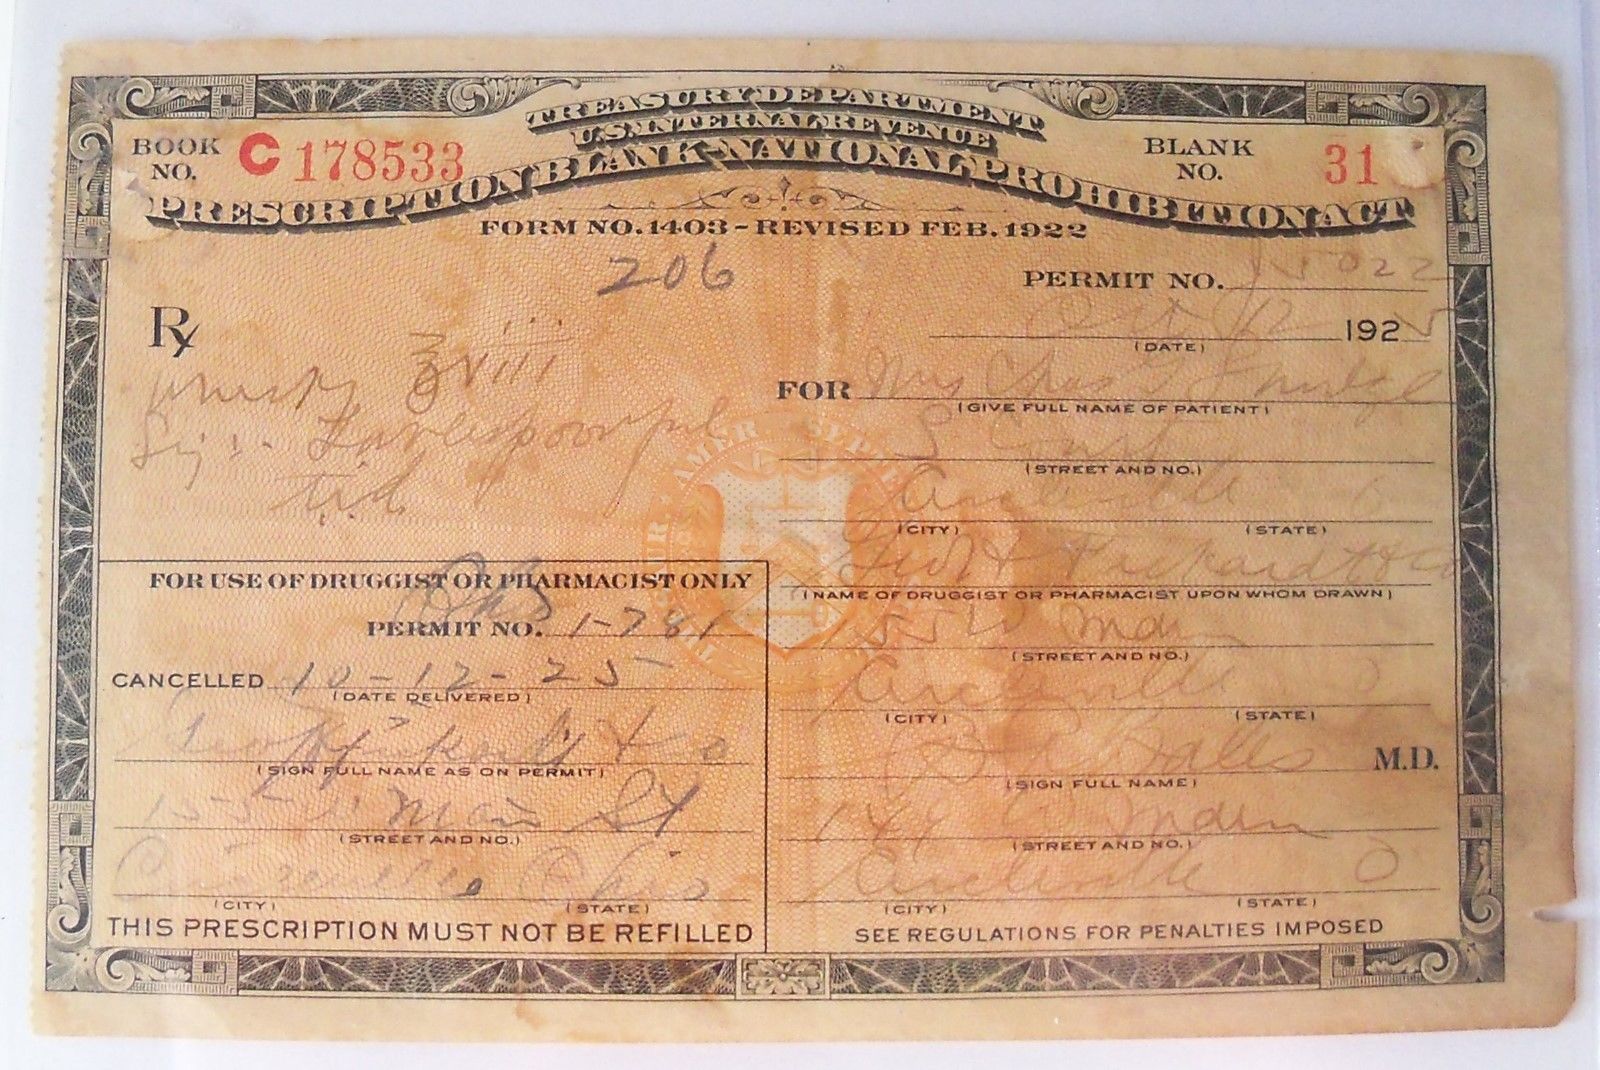 TREASURY DEPARTMENT
U.S. INTERNAL REVENUE
PRESCRIPTION BLANK-NATIONAL PROHIBITION ACT
BOOK NO. C 178533
BLANK NO. 31
FORM NO. 1403 - REVISED FEB. 1922
206
PERMIT NO. 15022
Oct 12 1925
(DATE)
Rx
Whisky ℥viii
Sig:- Tablespoonful
t.i.d.
FOR Mrs Chas
(GIVE FULL NAME OF PATIENT)
S Court
(STREET AND NO.)
Circleville O
(CITY) (STATE)
Geo H & Co
(NAME OF DRUGGIST OR PHARMACIST UPON WHOM DRAWN)
155 W Main
(STREET AND NO.)
Circleville O
(CITY) (STATE)
M.D.
(SIGN FULL NAME)
W Main
(STREET AND NO.)
Circleville O
(CITY) (STATE)
SEE REGULATIONS FOR PENALTIES IMPOSED
FOR USE OF DRUGGIST OR PHARMACIST ONLY
PERMIT NO. 1-781
CANCELLED 10-12-25
(DATE DELIVERED)
Geo H & Co
(SIGN FULL NAME AS ON PERMIT)
155 W Main St
(STREET AND NO.)
Circleville Ohio
(CITY) (STATE)
THIS PRESCRIPTION MUST NOT BE REFILLED